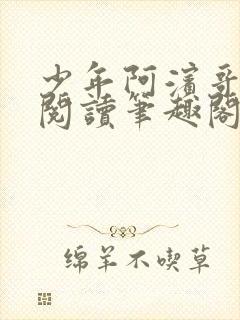 少年阿濱哥
閱讀筆趣閣
绵羊不喫草